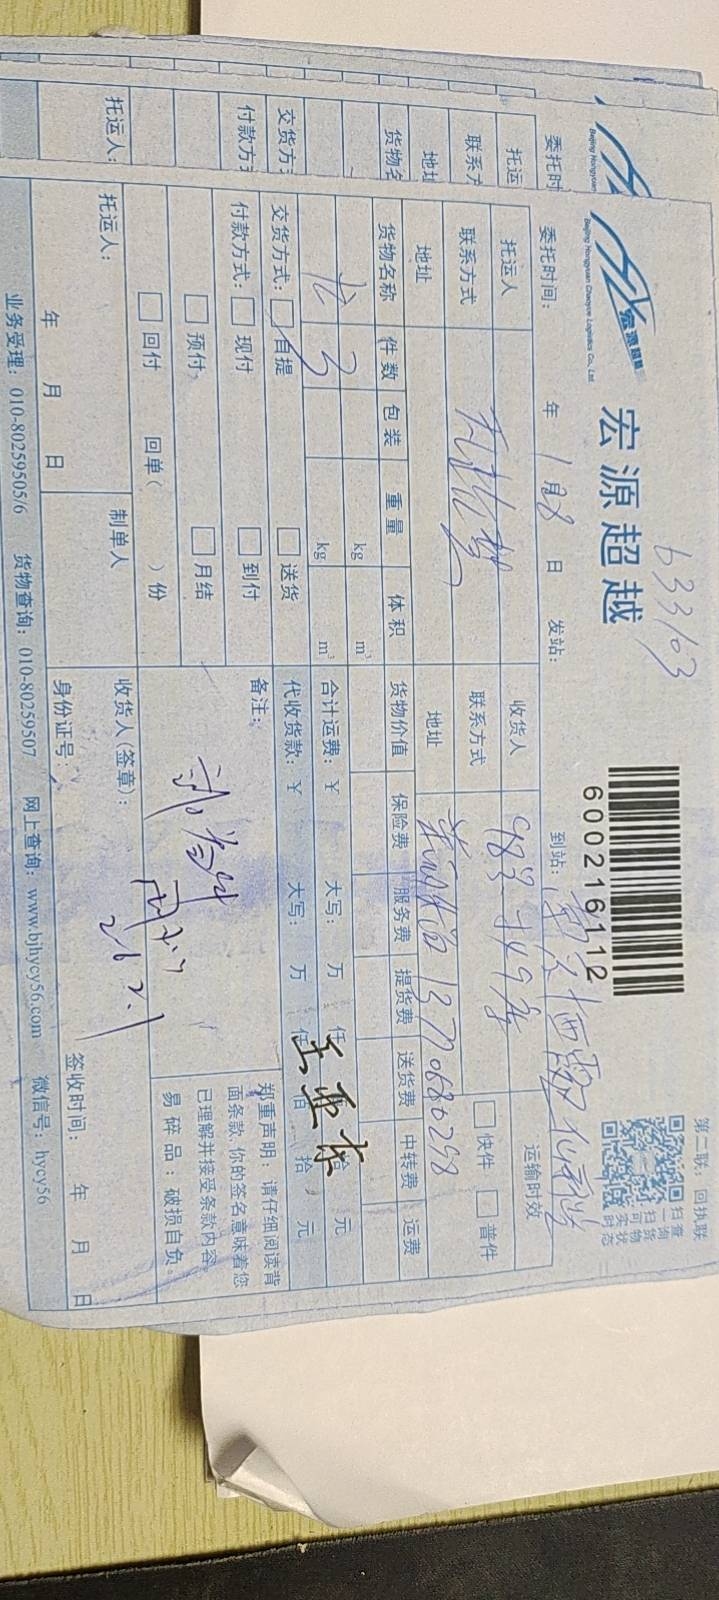 宏源超越
Beijing Hongyuan Chaoyue Logistics Co., Ltd.
宏源超越
633103
600216112
第二联：回执联
扫查
一询
扫货
可物
实状
时态
委托时间： 年 1月28日 发站： 到站：
托运人 收货人 运输时效
联系方式 联系方式 快件 普件
地址 地址 13770680298
货物名称 件数 包装 重量 体积 货物价值 保险费 服务费 提货费 送货费 中转费 运费
kg m³
3 kg m³
合计运费：￥ 大写： 万 仟 佰 拾 元
交货方式： 自提 送货 代收货款：￥ 大写： 万 仟 佰 拾 元
付款方式： 现付 到付 备注：
预付 月结
回付 回单（ ）份
郑重声明：请仔细阅读背
面条款，你的签名意味着您
已理解并接受条款内容
易碎品：破损自负。
托运人： 制单人 收货人(签章)：
26.2.1
年 月 日 身份证号： 签收时间： 年 月 日
业务受理：010-80259505/6 货物查询：010-80259507 网上查询：www.bjhycy56.com 微信号：hycy56
Beijing Hongyuan
委托时
托运
联系方
地址
货物名
交货方式
付款方式
托运人：